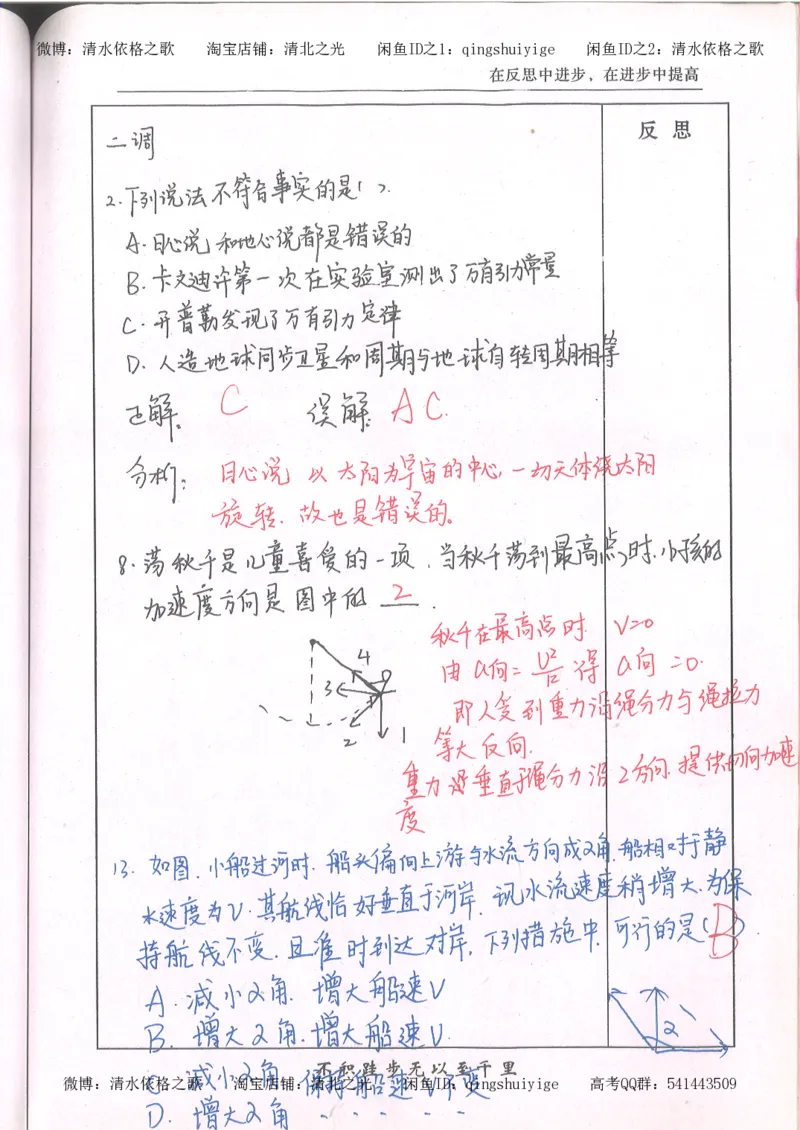 微博：清水依格之歌 淘宝店铺：清北之光 闲鱼ID之1：qingshuiyige 闲鱼ID之2：清水依格之歌
在反思中进步，在进步中提高
反 思
二调
2.下列说法不符合事实的是( ).
A.日心说和地心说都是错误的
B.卡文迪许第一次在实验室测出了万有引力常量
C.开普勒发现了万有引力定律
D.人造地球同步卫星和周期与地球自转周期相等
正解. C 误解. AC.
分析: 日心说 以太阳为宇宙的中心,一切天体绕太阳
旋转.故也是错误的。
8.荡秋千是儿童喜爱的一项.当秋千荡到最高点时.小孩的
加速度方向是图中的 2 .
秋千在最高点时 V=0
由 a向= V²/R 得 a向=0.
即人受到重力沿绳分力与绳拉力
等大反向.
重力沿垂直于绳分力沿2方向.提供切向加速
度
4
3
2
1
13. 如图.小船过河时.船头偏向上游与水流方向成α角.船相对于静
水速度为V.其航线恰好垂直于河岸.现水流速度稍增大.为保
持航线不变.且准时到达对岸,下列措施中,可行的是(B).
A.减小α角.增大船速V
B.增大α角.增大船速V.
α
不积跬步无以至千里
C.减小α角 保持船速V不变
微博：清水依格之歌 淘宝店铺：清北之光 闲鱼ID：qingshuiyige 高考QQ群：541443509
D.增大α角 - - - - -